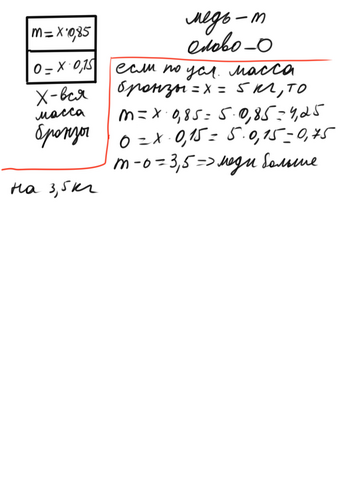 медь-m
олово-О
m=x·0,85
о=x·0,15
X-вся
масса
бронзы
если по усл. масса
бронзы=x=5кг,то
m=x·0,85=5·0,85=4,25
о=x·0,15=5·0,15=0,75
m-о=3,5=>меди больше
на 3,5кг